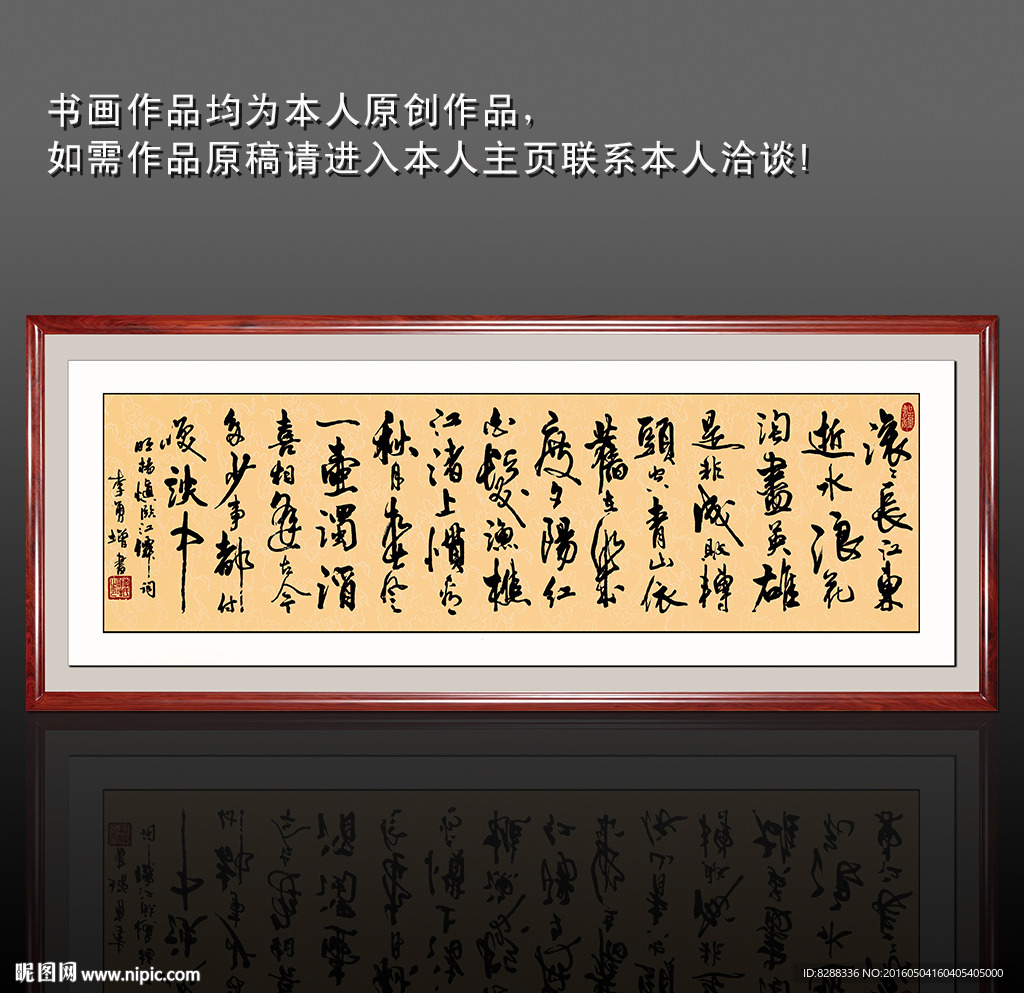 书画作品均为本人原创作品，
如需作品原稿请进入本人主页联系本人洽谈！
滚〻長江東
逝水浪花
淘盡英雄
是非成敗轉
頭空青山依
舊在幾
度夕陽红
白髮漁樵
江渚上慣看
秋月春風
一壷濁酒
喜相逢古今
多少事都付
笑談中
明楊慎臨江僊詞
李勇增書
昵图网 www.nipic.com
ID:8288336 NO:20160504160405405000